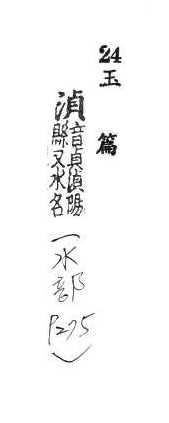 24 玉篇
湞 音貞湞陽
縣又水名
(水部 P275)